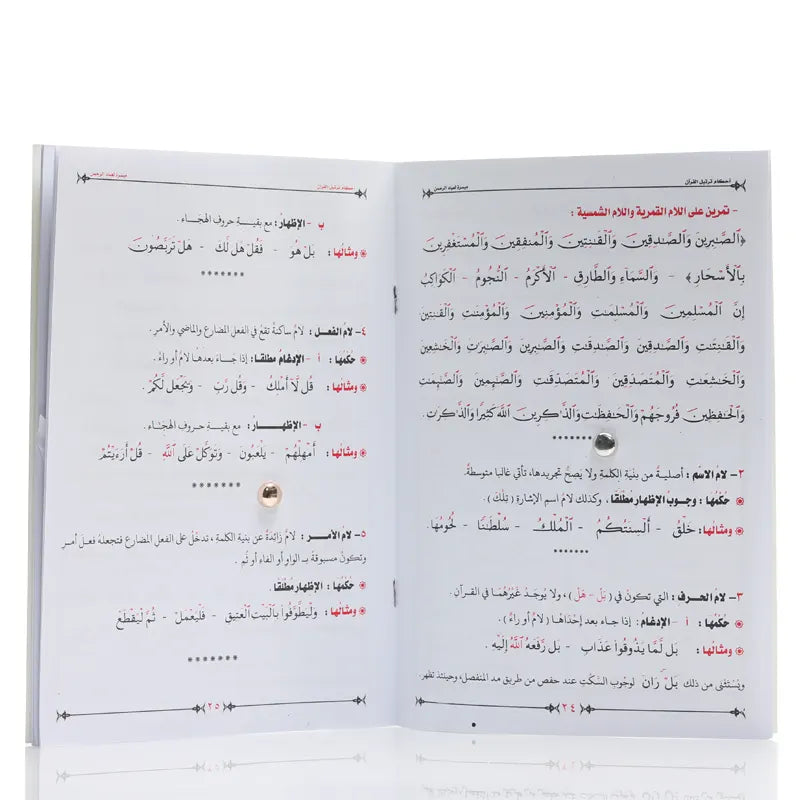 أحكام ترتيل القرآن
ميسرة لعباد الرحمن
- تمرين على اللام القمرية واللام الشمسية :
﴿ٱلصَّٰبِرِينَ وَٱلصَّٰدِقِينَ وَٱلْقَٰنِتِينَ وَٱلْمُنفِقِينَ وَٱلْمُسْتَغْفِرِينَ
بِٱلْأَسْحَارِ﴾ - وَٱلسَّمَآءِ وَٱلطَّارِقِ - ٱلْأَكْرَمُ - ٱلنُّجُومُ - ٱلْكَوَاكِبُ
إِنَّ ٱلْمُسْلِمِينَ وَٱلْمُسْلِمَٰتِ وَٱلْمُؤْمِنِينَ وَٱلْمُؤْمِنَٰتِ وَٱلْقَٰنِتِينَ
وَٱلْقَٰنِتَٰتِ وَٱلصَّٰدِقِينَ وَٱلصَّٰدِقَٰتِ وَٱلصَّٰبِرِينَ وَٱلصَّٰبِرَٰتِ وَٱلْخَٰشِعِينَ
وَٱلْخَٰشِعَٰتِ وَٱلْمُتَصَدِّقِينَ وَٱلْمُتَصَدِّقَٰتِ وَٱلصَّٰٓئِمِينَ وَٱلصَّٰٓئِمَٰتِ
وَٱلْحَٰفِظِينَ فُرُوجَهُمْ وَٱلْحَٰفِظَٰتِ وَٱلذَّٰكِرِينَ ٱللَّهَ كَثِيرًا وَٱلذَّٰكِرَٰتِ .
*******
٢- لامُ الاسْم : أصليةٌ من بنيَة الكلمةِ ولا يَصحُّ تجريدها، تأتي غالبا متوسطةً
حُكْمُها : وجوبُ الإظهار مُطْلَقًا ، وكذلك لامُ اسم الإشارةِ ( تِلْكَ ) .
ومثالُها: خَلْقُ - أَلْسِنَتُكُمُ - ٱلْمُلْكُ - سُلْطَٰنَنَا - لُحُومُهَا .
*******
٣- لامُ الحرف : التي تكونُ في ( بَلْ - هَلْ ) ، ولا يُوجَدُ غَيْرُهُمَا في القرآن .
حُكْمُها : أ - الإدغام : إذا جاء بعد إحْدَاهَا ( لامٌ أو راءٌ ) .
ومثالُها : بَل لَّمَّا يَذُوقُوا عَذَابِ - بَل رَّفَعَهُ ٱللَّهُ إِلَيْهِ .
ويُستثنى من ذلك بَلْ رَانَ لوجوبِ السَّكْتِ عند حفص من طريق مد المنفصل، وحينئذ تظهر.
٢٤
أحكام ترتيل القرآن
ميسرة لعباد الرحمن
ب - الإظهار : مع بقية حروف الهجَاء .
ومثالُها : بَلْ هُوَ - فَقُلْ هَل لَّكَ - هَلْ تَرَبَّصُونَ
*******
٤- لامُ الفعل : لامٌ ساكنةٌ تقعُ في الفعل المضارع والماضي والأمرِ .
حُكْمُها : أ - الإدغامُ مطلقا : إذا جاءَ بعدهَا لامٌ أو راءٌ .
ومثالُها : قُل لَّا أَمْلِكُ - وَقُل رَّبِّ - وَيَجْعَل لَّكُمْ .
ب - الإظهارُ : مع بقيةِ حروف الهجَاء .
ومثالُها : أَمْهِلْهُمْ - يَلْعَبُونَ - وَتَوَكَّلْ عَلَى ٱللَّهِ - قُلْ أَرَءَيْتُمْ
*******
٥- لامُ الأمر : لامٌ زائدةٌ عن بنية الكلمة، تدخلُ على الفعل المضارع فتجعلهُ فعلَ أمر
وتكونُ مسبوقة بـ الواو أو الفاء أو ثُم .
حُكْمُها : الإظهارُ مُطْلَقا .
ومثالُها : وَلْيَطَّوَّفُوا بِٱلْبَيْتِ ٱلْعَتِيقِ - فَلْيَعْمَلْ - ثُمَّ لْيَقْطَعْ
*******
٢٥